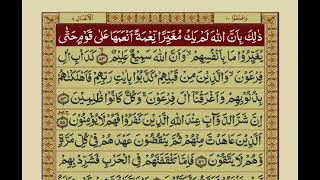 واعلموٓا ١٠
الانفال ٨
ذٰلِكَ بِاَنَّ اللّٰهَ لَمْ يَكُ مُغَيِّرًا نِّعْمَةً اَنْعَمَهَا عَلٰى قَوْمٍ حَتّٰى
يُغَيِّرُوْا مَا بِاَنْفُسِهِمْ ۙ وَاَنَّ اللّٰهَ سَمِيْعٌ عَلِيْمٌ ۙ﴿۵۳﴾ كَدَاْبِ اٰلِ
فِرْعَوْنَ ۙ وَالَّذِيْنَ مِنْ قَبْلِهِمْ ؕ كَذَّبُوْا بِاٰيٰتِ رَبِّهِمْ فَاَهْلَكْنٰهُمْ
بِذُنُوْبِهِمْ وَاَغْرَقْنَاۤ اٰلَ فِرْعَوْنَ ۚ وَكُلٌّ كَانُوْا ظٰلِمِيْنَ ﴿۵۴﴾
اِنَّ شَرَّ الدَّوَآبِّ عِنْدَ اللّٰهِ الَّذِيْنَ كَفَرُوْا فَهُمْ لَا يُؤْمِنُوْنَ ۖۚ﴿۵۵﴾
اَلَّذِيْنَ عَاهَدْتَّ مِنْهُمْ ثُمَّ يَنْقُضُوْنَ عَهْدَهُمْ فِىْ كُلِّ مَرَّةٍ
وَّهُمْ لَا يَتَّقُوْنَ ﴿۵۶﴾ فَاِمَّا تَثْقَفَنَّهُمْ فِى الْحَرْبِ فَشَرِّدْ بِهِمْ